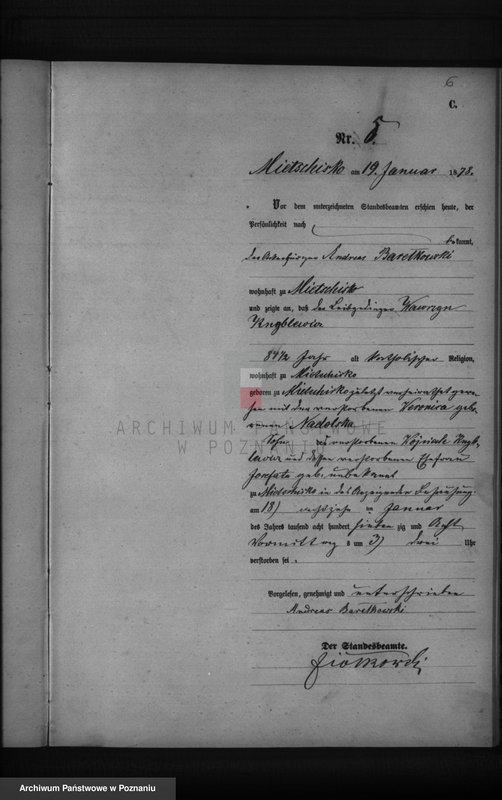 6
C.
Nr. 5.
Mietschisko am 19. Januar 1878.
Vor dem unterzeichneten Standesbeamten erschien heute, der
Persönlichkeit nach
bekannt,
der Ackerbürger Andreas Baretkowski
wohnhaft zu Mietschisko
und zeigte an, daß der Leibgedinger Wawrzyn
84 1/2 Jahr alt katholischer Religion,
wohnhaft zu Mietschisko
geboren zu Mietschisko zuletzt verheirathet gewe-
sen mit der verstorbenen Veronica gebo-
renen Nadolska
ARCHIWUM PAŃSTWOWE
W POZNANIU
Sohn des verstorbenen
und dessen verstorbenen Ehefrau
Josefata geb. unbekannt
zu Mietschisko in des Anzeigender Behausung
am 18) achtzehn ten Januar
des Jahres tausend acht hundert siebenzig und Acht
Vormittags um 3) drei Uhr
verstorben sei.
Vorgelesen, genehmigt und unterschrieben
Andreas Baretkowski
Der Standesbeamte.
Archiwum Państwowe w Poznaniu